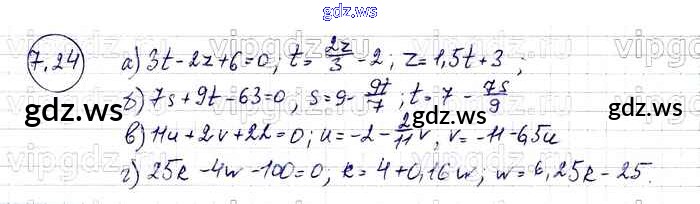 gdz.ws
7.24 а) 3t-2z+6=0, t=2z/3-2; z=1,5t+3;
б) 7s+9t-63=0, s=9-9t/7; t=7-7s/9
в) 11u+2v+22=0; u=-2-2/11v, v=-11-5,5u
г) 25k-4w-100=0, k=4+0,16w; w=6,25k-25.
gdz.ws
gdz.ws
vipgdz.ws
gdz.ws